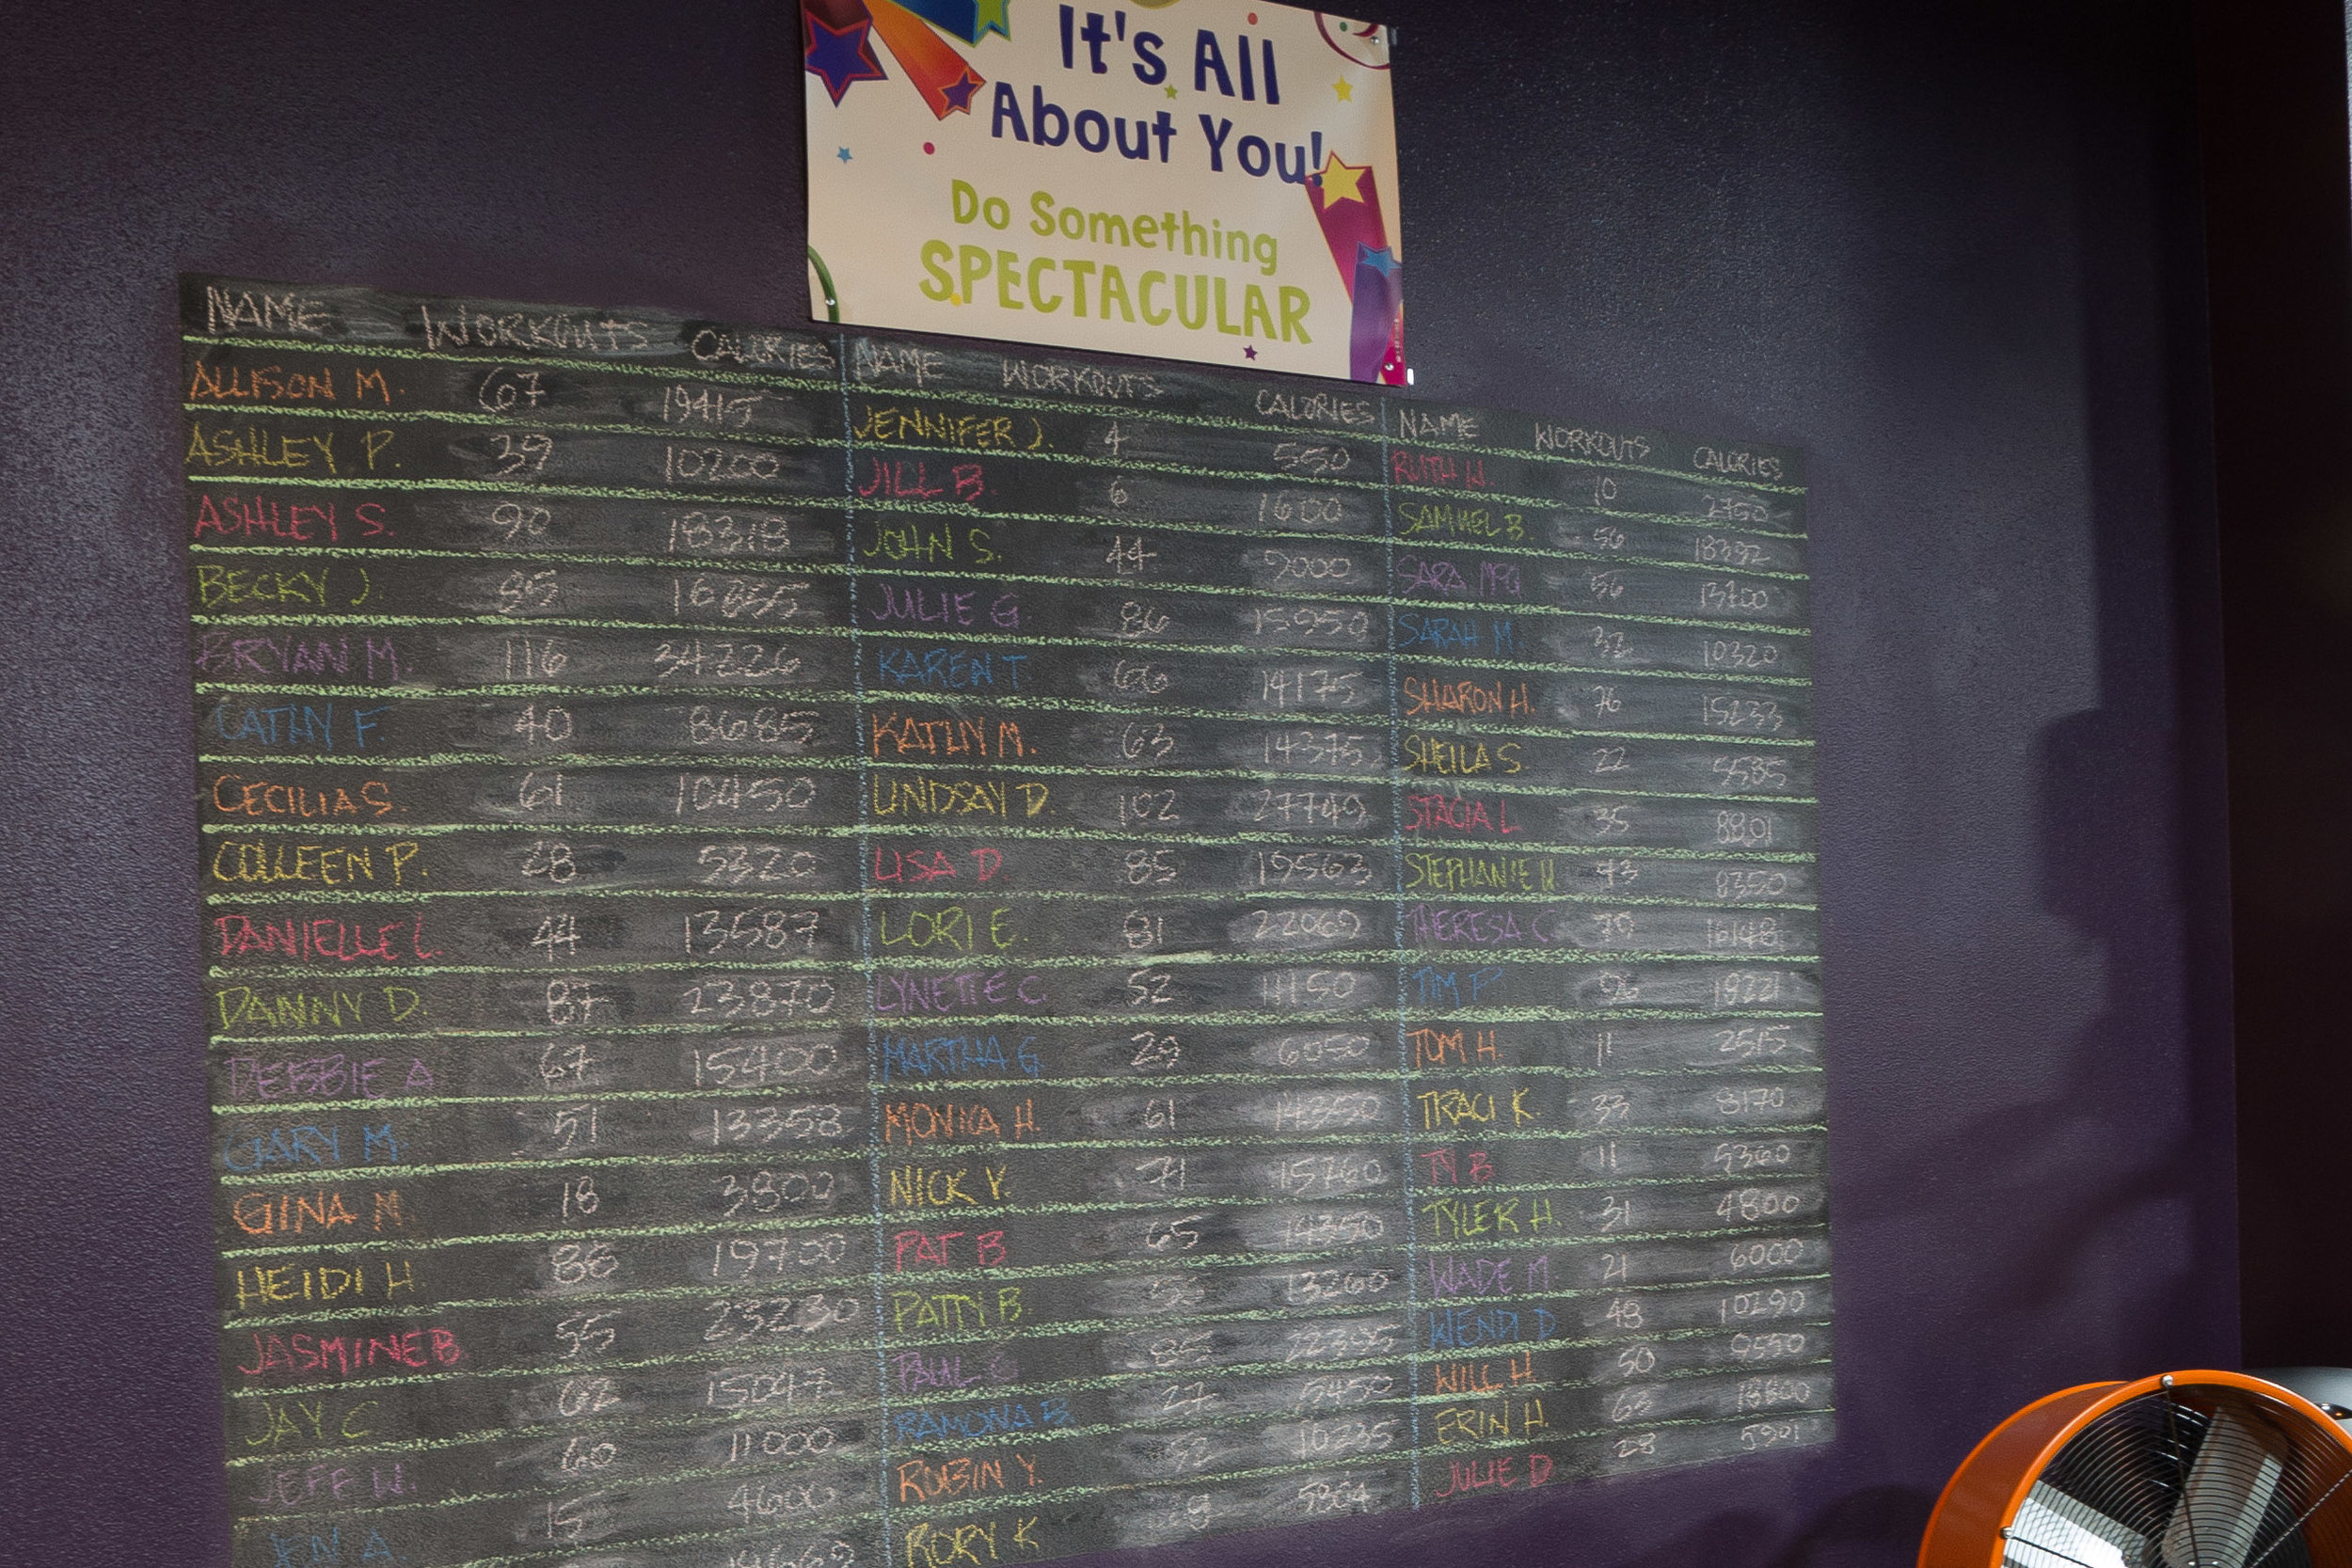 It's All
About You!
Do Something
SPECTACULAR
NAME WORKOUTS CALORIES
ALLISON M. 67 19415
ASHLEY P. 39 10200
ASHLEY S. 90 18318
BECKY J. 85 16855
BRYAN M. 116 34226
CATHY F. 40 8685
CECILIA S. 61 10450
COLLEEN P. 28 5320
DANIELLE L. 44 13587
DANNY D. 87 23870
DEBBIE A 67 15400
GARY M. 51 13358
GINA M. 18 3800
HEIDI H. 86 19700
JASMINE B 55 23230
JAY C 62 15047
JEFF W. 60 11000
JEN A. 15 4600
NAME WORKOUTS CALORIES
JENNIFER J. 4 550
JILL B. 6 1600
JOHN S. 44 9000
JULIE G. 86 15950
KAREN T. 66 14175
KATHY M. 63 14375
LINDSAY D. 102 27749
LISA D. 85 19563
LORI E. 81 22069
LYNETTE C. 52 11150
MARTHA G 29 6050
MONICA H. 61 14350
NICK V. 71 15760
PAT B 65 14350
PATTY B. 13260
PAUL C 85
RAMONA B. 27 5450
ROBIN Y. 52 10235
RORY K 5804
NAME WORKOUTS CALORIES
RUTH H. 10 2750
SAMUEL B. 56 18392
SARA 56 13700
SARAH M. 32 10320
SHARON H. 76 15233
SHEILA S. 22 5585
STACIA L 35 8801
STEPHANIE H 43 8350
THERESA C 79 16148
TIM P 96 19221
TOM H. 11 2515
TRACI K. 33 8170
TY B 11 5360
TYLER H. 31 4800
WADE M. 21 6000
WENDI D 48 10290
WILL H. 50 9550
ERIN H. 63 18800
JULIE D 28 5991